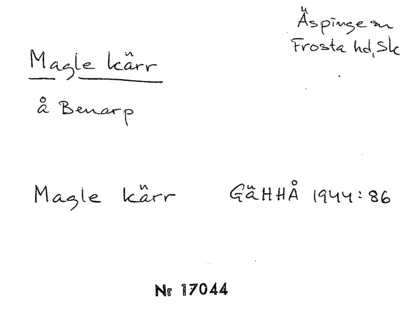 Äspinge sn
Frosta hd, Sk
Magle kärr
å Benarp
Magle kärr GäHHÅ 1944:86
Nr 17044